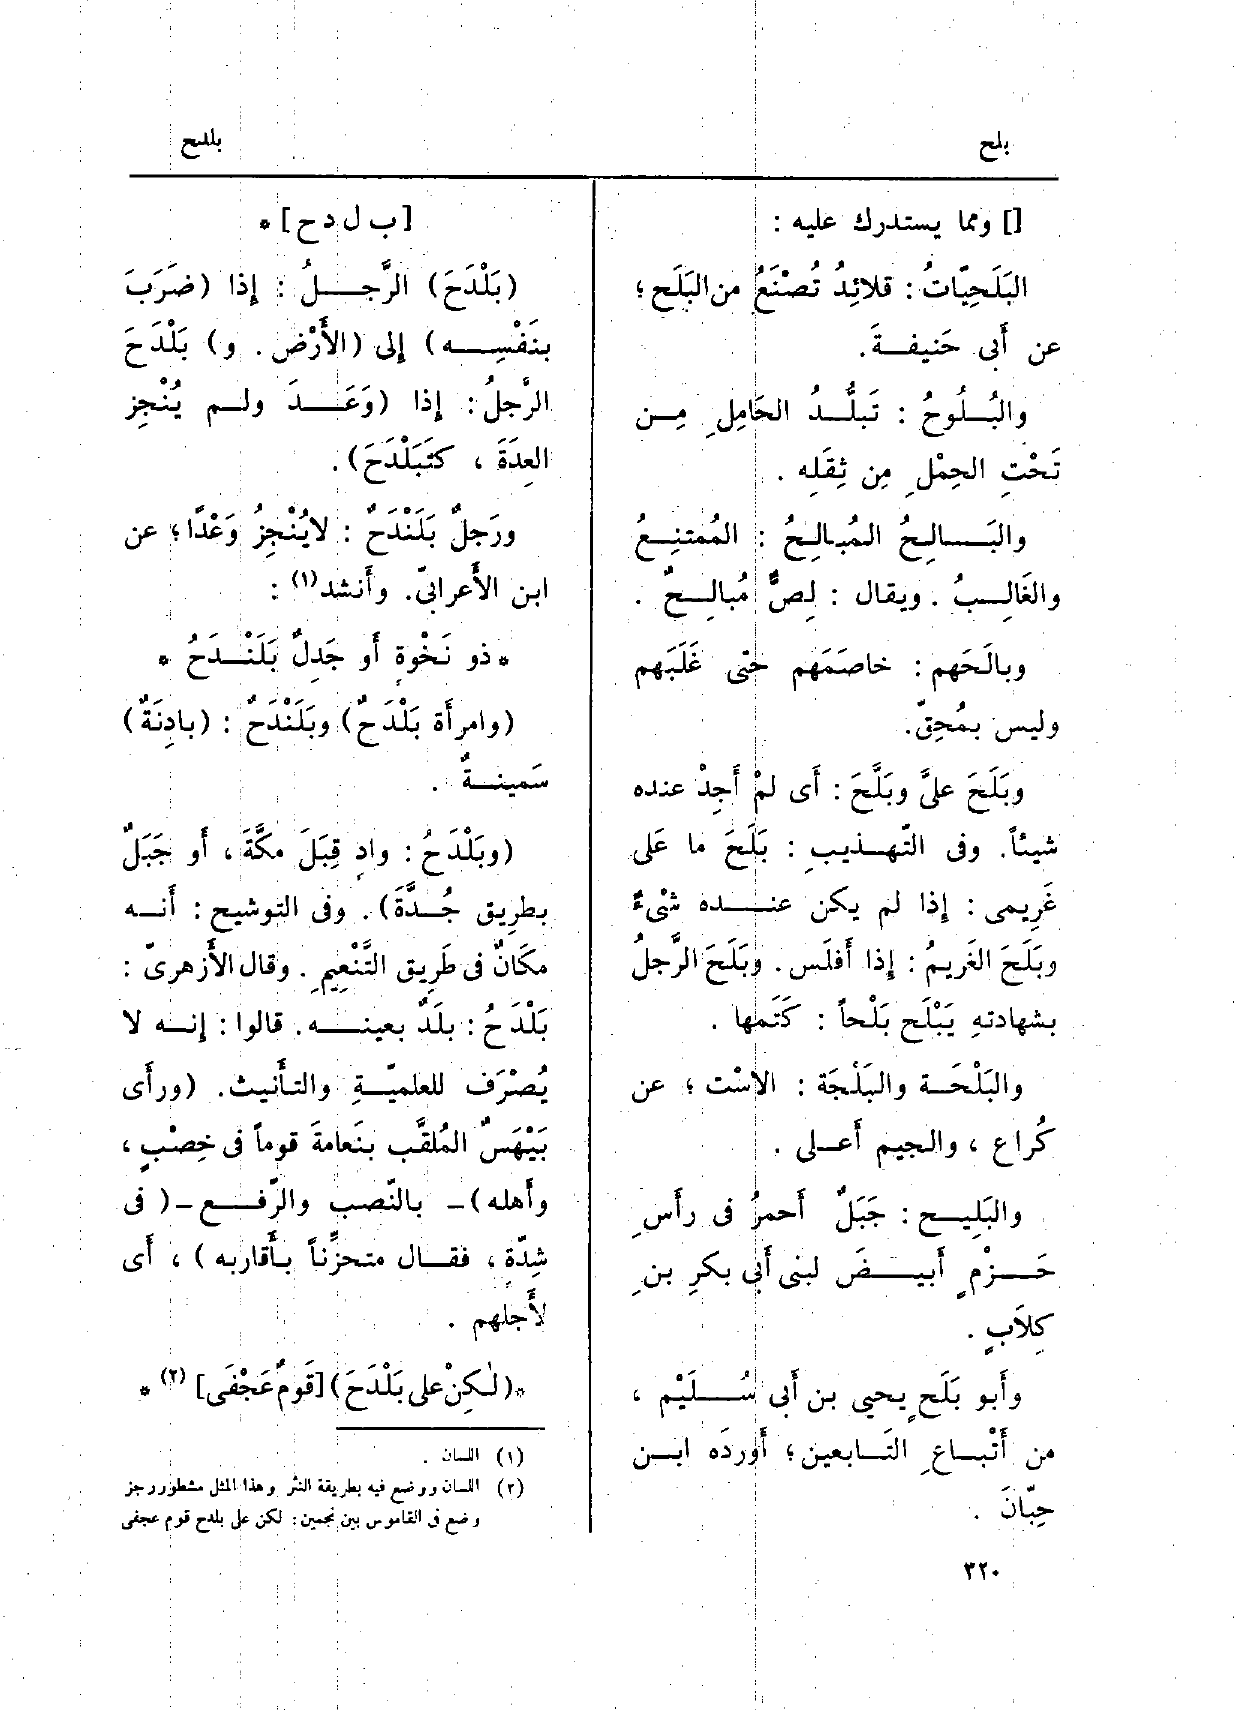 بلح
بلدح
[] ومما يستدرك عليه :
البَلَحِيّاتُ : قلائِدُ تُصْنَعُ من البَلَح ؛
عن أَبى حَنيفـة.
والبُـلُوحُ : تَبلُّـدُ الحَامِلِ مِـن
تَحْتِ الحِمْلِ مِن ثِقَلِه .
والبَـالِـحُ المُبالِـحُ : المُمتنِـعُ
والغَالِـبُ . ويقال : لِصٌّ مُبالِـحٌ .
وبالَحَهم : خاصَمَهم حتى غَلَبَهم
وليس بمُحِقّ.
وبَلَحَ علىَّ وبَلَّحَ : أَى لمْ أَجِدْ عنده
شيئاً. وفى التّهـذيبِ : بَلَحَ ما عَلَى
غَرِيمى : إذا لم يكن عنـده شىْءٌ
وبَلَحَ الغَرِيمُ : إذا أَفلَس . وبَلَحَ الرَّجلُ
بشهادتهِ يَبْلَح بَلْحاً : كَتَمها .
والبَلْحَـة والبَلْجَة : الاسْت ؛ عن
كُراع ، والجيم أَعـلى .
والبَلِيـح : جَبَلٌ أَحمرُ فى رأْسِ
حَـزْمٍ أَبيـض لبنى أَبى بكرِ بنِ
كِلاَبٍ .
وأَبو بَلَحٍ يحيى بن أَبى سُـلَيْم ،
من أَتْبـاعِ التَـابعين ؛ أَورَده ابـن
حِبّانَ .
[ب ل د ح] *
(بَلْدَحَ) الرَّجـلُ : إذا (ضَرَبَ
بنَفْسِـه) إلى (الأَرْض . و) بَلْدَحَ
الرَّجلُ : إذا (وَعَـدَ ولـم يُنْجِز
العِدَةَ ، كتَبَلْدَحَ).
ورَجلٌ بَلَنْدَحٌ : لايُنْجِزُ وَعْدًا ؛ عن
ابن الأَعرابىّ. وأَنشد(١) :
* ذو نَخْوةٍ أَو جَدِلٌ بَلَنْـدَحُ *
(وامرأَة بَلْدَحٌ) وبَلَنْدَحٌ : (بادِنَةٌ)
سَمينـةٌ .
(وبَلْدَحُ : وادٍ قِبَلَ مكَّةَ ، أَو جَبَلٌ
بطرِيق جُـدَّةَ). وفى التوشيح : أَنـه
مكَانٌ فى طَرِيق التَّنْعِيمِ . وقال الأَزهرىّ :
بَلْدَحُ : بلَدٌ بعينـه . قالوا : إنـه لا
يُصْرَف للعلميّـةِ والتـأْنيث. (ورأَى
بَيْهَسٌ المُلقَّب بنَعامةَ قوماً فى خِصْبٍ ،
وأَهله)– بالنّصب والرّفـع –( فى
شِدّةٍ ، فقـال متحزِّناً بـأَقاربه ) ، أَى
لأَجلهم .
*( لٰكِنْ على بَلْدَحَ) [قَومٌ عَجْفَى] (٢) *
(١) اللسان .
(٢) اللسان ووضع فيه بطريقة النثر وهذا المثل مشطور رجز
وضع فى القاموس بين نجمين : لكن على بلدح قوم عجفى
٣٢٠